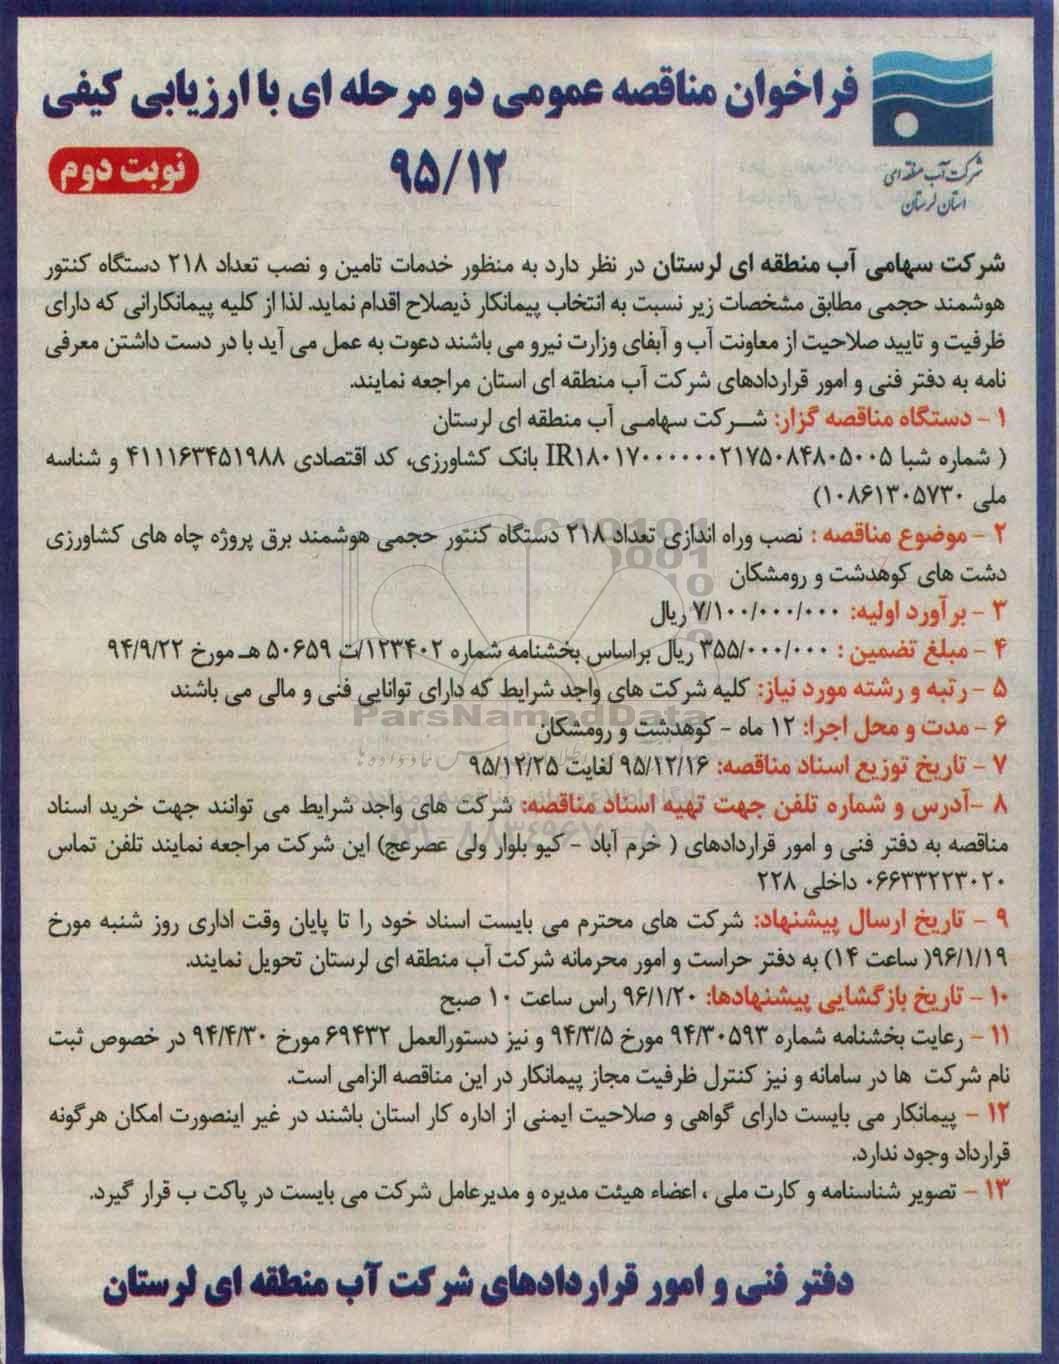 فراخوان مناقصه عمومی دو مرحله ای با ارزیابی کیفی
۹۵/۱۲
نوبت دوم
شرکت آب منطقه ای
استان لرستان
شرکت سهامی آب منطقه ای لرستان در نظر دارد به منظور خدمات تامین و نصب تعداد ۲۱۸ دستگاه کنتور
هوشمند حجمی مطابق مشخصات زیر نسبت به انتخاب پیمانکار ذیصلاح اقدام نماید. لذا از کلیه پیمانکارانی که دارای
ظرفیت و تایید صلاحیت از معاونت آب و آبفای وزارت نیرو می باشند دعوت به عمل می آید با در دست داشتن معرفی
نامه به دفتر فنی و امور قراردادهای شرکت آب منطقه ای استان مراجعه نمایند.
۱ - دستگاه مناقصه گزار: شرکت سهامی آب منطقه ای لرستان
( شماره شبا IR۱۸۰۱۷۰۰۰۰۰۰۰۲۱۷۵۰۸۴۸۰۵۰۰۵ بانک کشاورزی، کد اقتصادی ۴۱۱۱۶۳۴۵۱۹۸۸ و شناسه
ملی ۱۰۸۶۱۳۰۵۷۳۰)
۲ - موضوع مناقصه : نصب وراه اندازی تعداد ۲۱۸ دستگاه کنتور حجمی هوشمند برق پروژه چاه های کشاورزی
دشت های کوهدشت و رومشکان
۳ - برآورد اولیه: ۷/۱۰۰/۰۰۰/۰۰۰ ریال
۴ - مبلغ تضمین : ۳۵۵/۰۰۰/۰۰۰ ریال براساس بخشنامه شماره ۱۲۳۴۰۲/ت ۵۰۶۵۹ هـ مورخ ۹۴/۹/۲۲
۵ - رتبه و رشته مورد نیاز: کلیه شرکت های واجد شرایط که دارای توانایی فنی و مالی می باشند
ParsNamadData
۶ - مدت و محل اجرا: ۱۲ ماه - کوهدشت و رومشکان
۷ - تاریخ توزیع اسناد مناقصه: ۹۵/۱۲/۱۶ لغایت ۹۵/۱۲/۲۵
۸ -آدرس و شماره تلفن جهت تهیه اسناد مناقصه: شرکت های واجد شرایط می توانند جهت خرید اسناد
مناقصه به دفتر فنی و امور قراردادهای ( خرم آباد - کیو بلوار ولی عصرعج) این شرکت مراجعه نمایند تلفن تماس
۰۶۶۳۳۲۲۳۰۲۰ داخلی ۲۲۸
۹ - تاریخ ارسال پیشنهاد: شرکت های محترم می بایست اسناد خود را تا پایان وقت اداری روز شنبه مورخ
۹۶/۱/۱۹( ساعت ۱۴) به دفتر حراست و امور محرمانه شرکت آب منطقه ای لرستان تحویل نمایند.
۱۰ - تاریخ بازگشایی پیشنهادها: ۹۶/۱/۲۰ راس ساعت ۱۰ صبح
۱۱ - رعایت بخشنامه شماره ۹۴/۳۰۵۹۳ مورخ ۹۴/۳/۵ و نیز دستورالعمل ۶۹۴۳۲ مورخ ۹۴/۴/۳۰ در خصوص ثبت
نام شرکت ها در سامانه و نیز کنترل ظرفیت مجاز پیمانکار در این مناقصه الزامی است.
۱۲ - پیمانکار می بایست دارای گواهی و صلاحیت ایمنی از اداره کار استان باشند در غیر اینصورت امکان هرگونه
قرارداد وجود ندارد.
۱۳ - تصویر شناسنامه و کارت ملی ، اعضاء هیئت مدیره و مدیرعامل شرکت می بایست در پاکت ب قرار گیرد.
دفتر فنی و امور قراردادهای شرکت آب منطقه ای لرستان